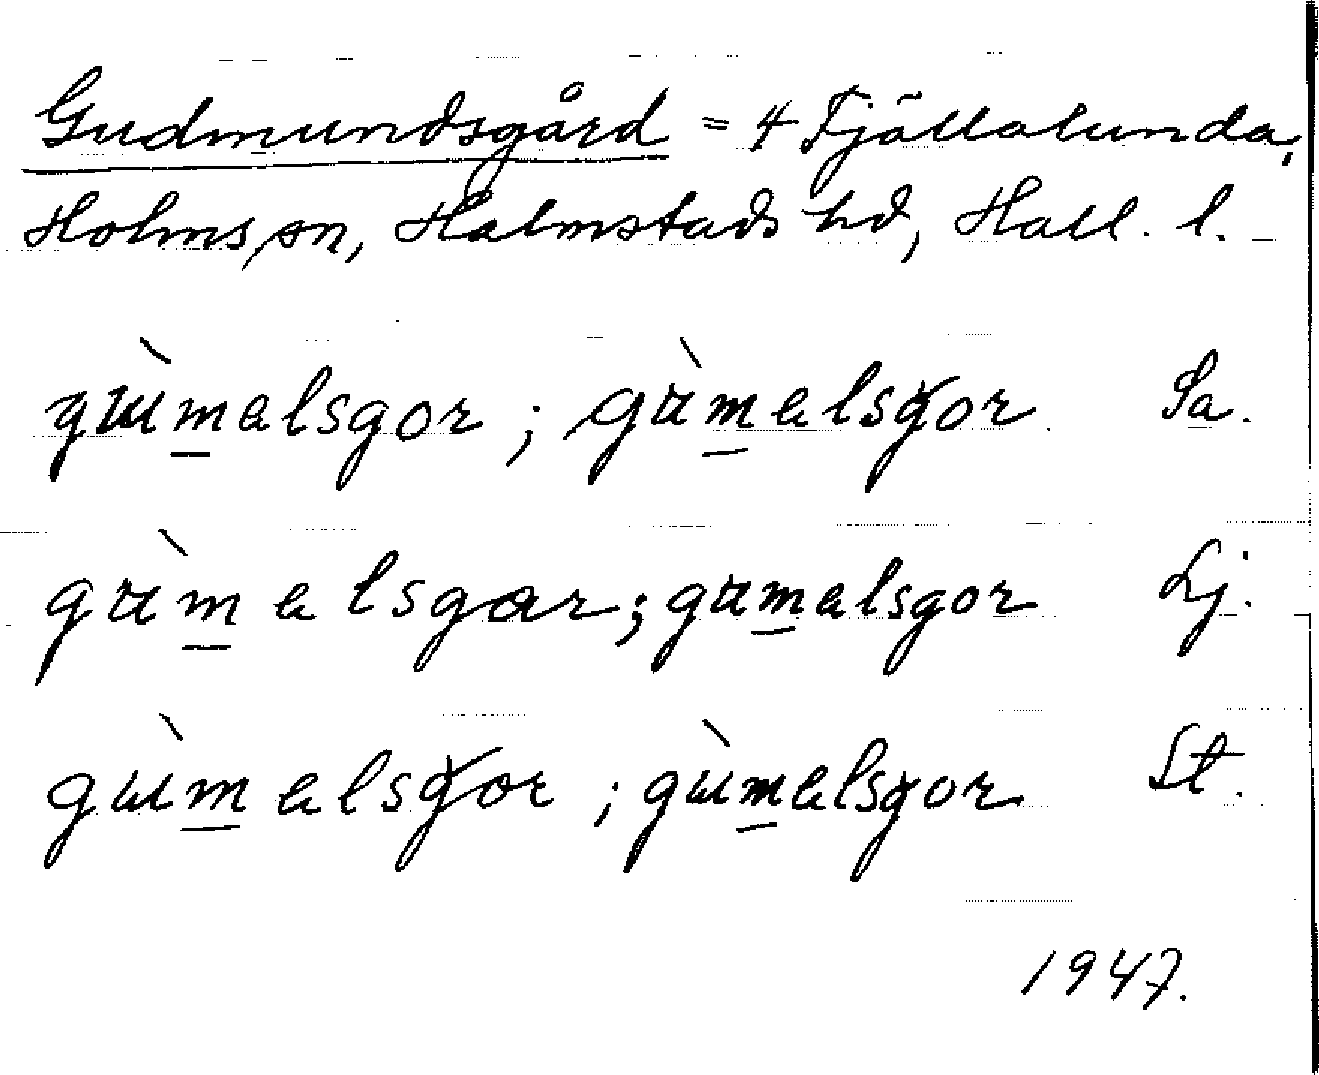 Gudmundsgård = 4 Fjällalunda,
Holms sn, Halmstads hd, Hall. l.
gɯ̀m̲alsgor ; gùm̲alsgor Sa.
gùm̲alsgar; gum̲alsgor Lj.
gɯ̀m̲alsgor ; gɯ̀m̲alsgor St.
1947.